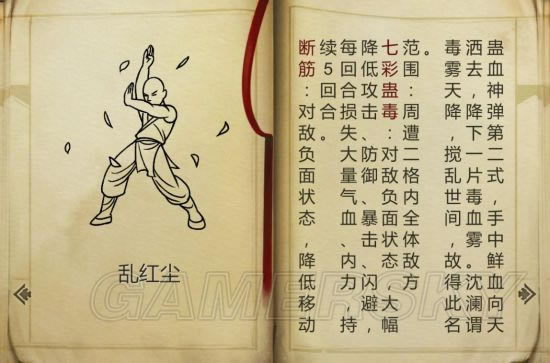 蛊血神弹第二式，手中鲜血向天
洒去，降下一片毒血雾。沈澜谓
毒雾天降，搅乱世间，故得此名
。
范围：周遭二格内全体敌方
七彩蛊毒：对敌负面状态，大幅
降低攻击、防御、暴击、闪避，
每回合损失大量气血、内力，持
续5回合。
断筋：对敌负面状态，降低移动
乱红尘
GAMERSKY